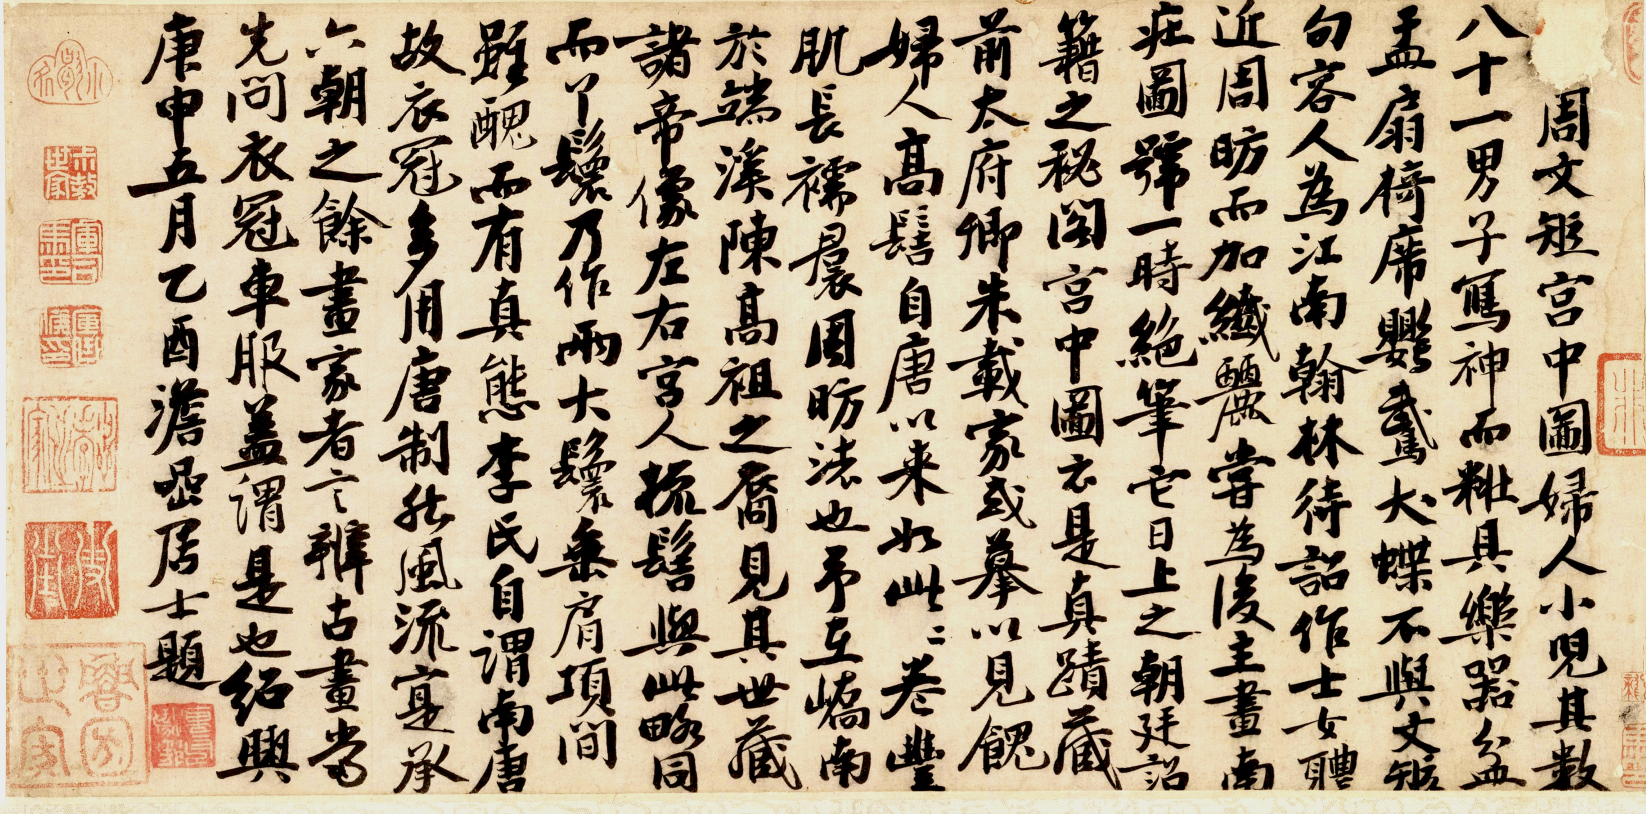 周文矩宫中圖婦人小兒其數
八十一男子寫神而粧具樂器盆
盂扇椅席鸚鵡犬蝶不與文矩
句容人為江南翰林待詔作士女體
近周昉而加纖麗嘗為後主畫南
莊圖號一時絶筆它日上之朝廷詔
籍之秘閣宫中圖云是真蹟藏
前太府卿朱載家或摹以見餽
婦人高髻自唐以来如此此卷豐
肌長襦裙周昉法也予至嶠南
於端溪陳高祖之裔見其世藏
諸帝像左右宫人梳髻與此略同
而丫鬟乃作兩大鬟垂肩項間
雖醜而有真態李氏自謂南唐
故衣冠多用唐制然風流寔承
六朝之餘畫家者言辨古畫當
先問衣冠車服蓋謂是也紹興
庚申五月乙酉澹嵒居士題